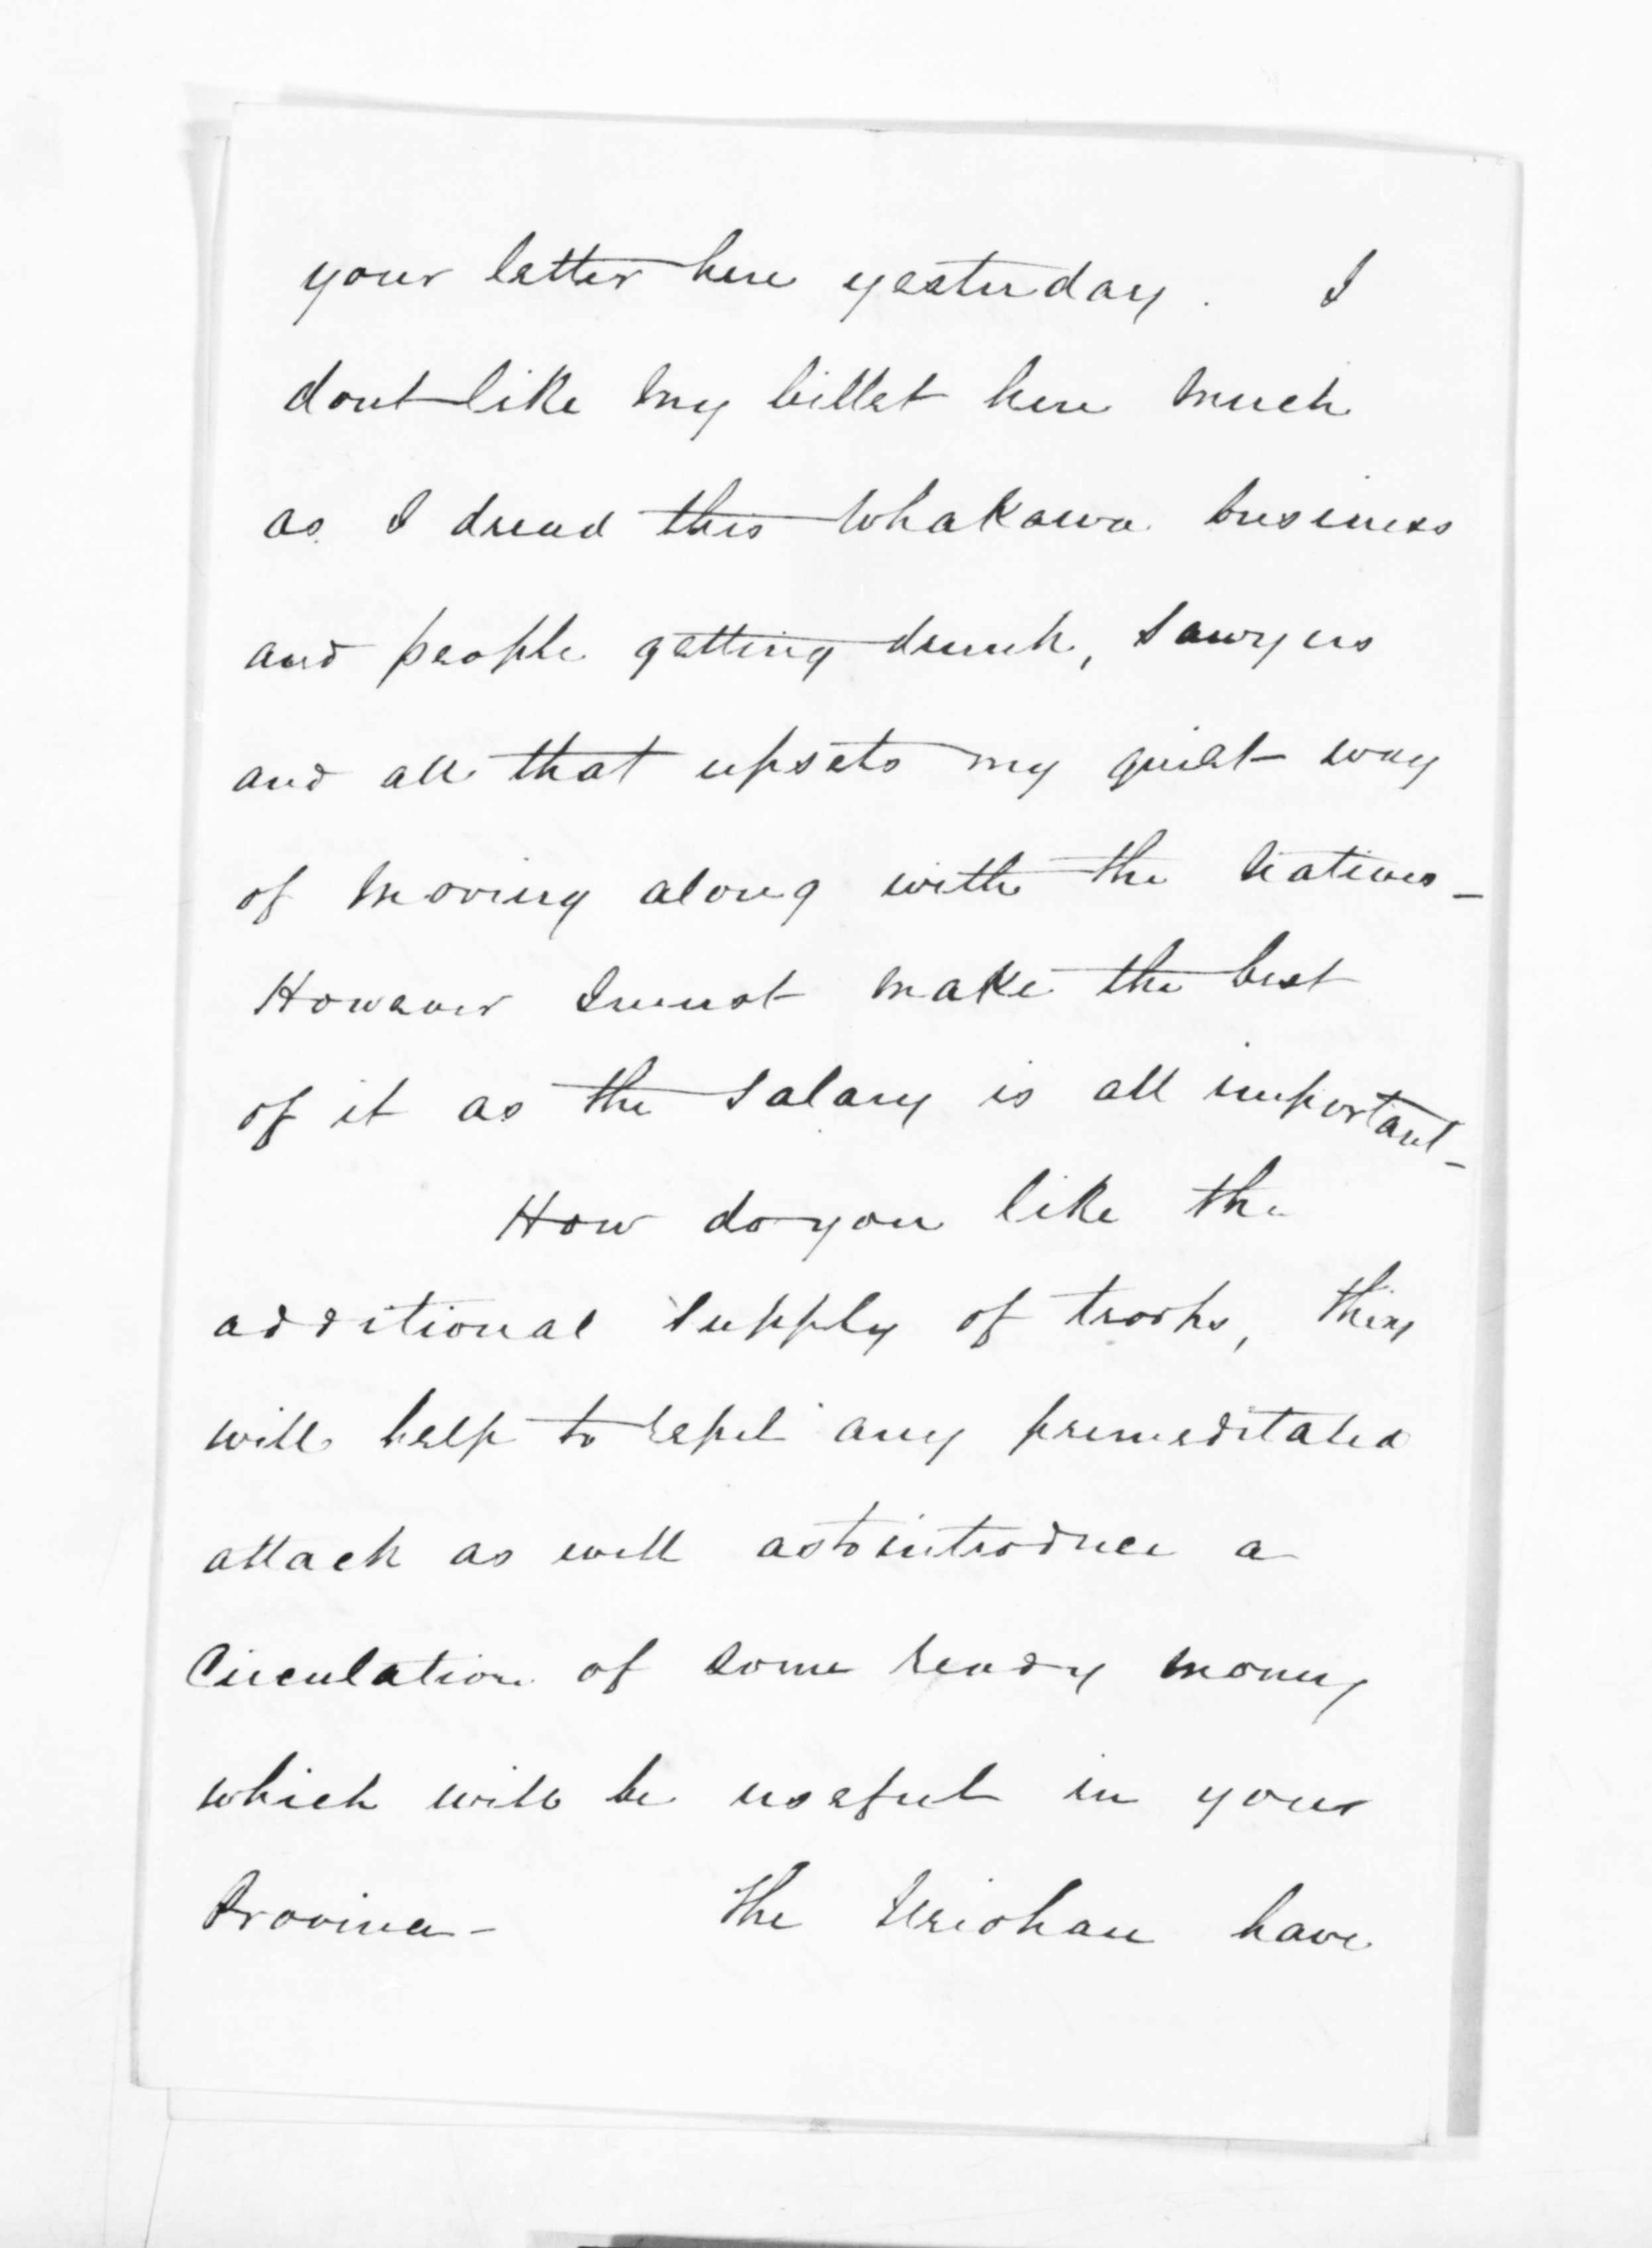 your letter here yesterday. I
dont like my billet here much
as I dread this Whakawa business
and people getting drunk, Sawyers
and all that upsets my quiet way
of moving along with the Natives _
However I must make the best
of it as the Salary is all important _
How do you like the
additional Supply of troops, they
will help to repel any premeditated
attack as well as to introduce a
Circulation of some ready money
which will be useful in your
Province - The Uriohau have